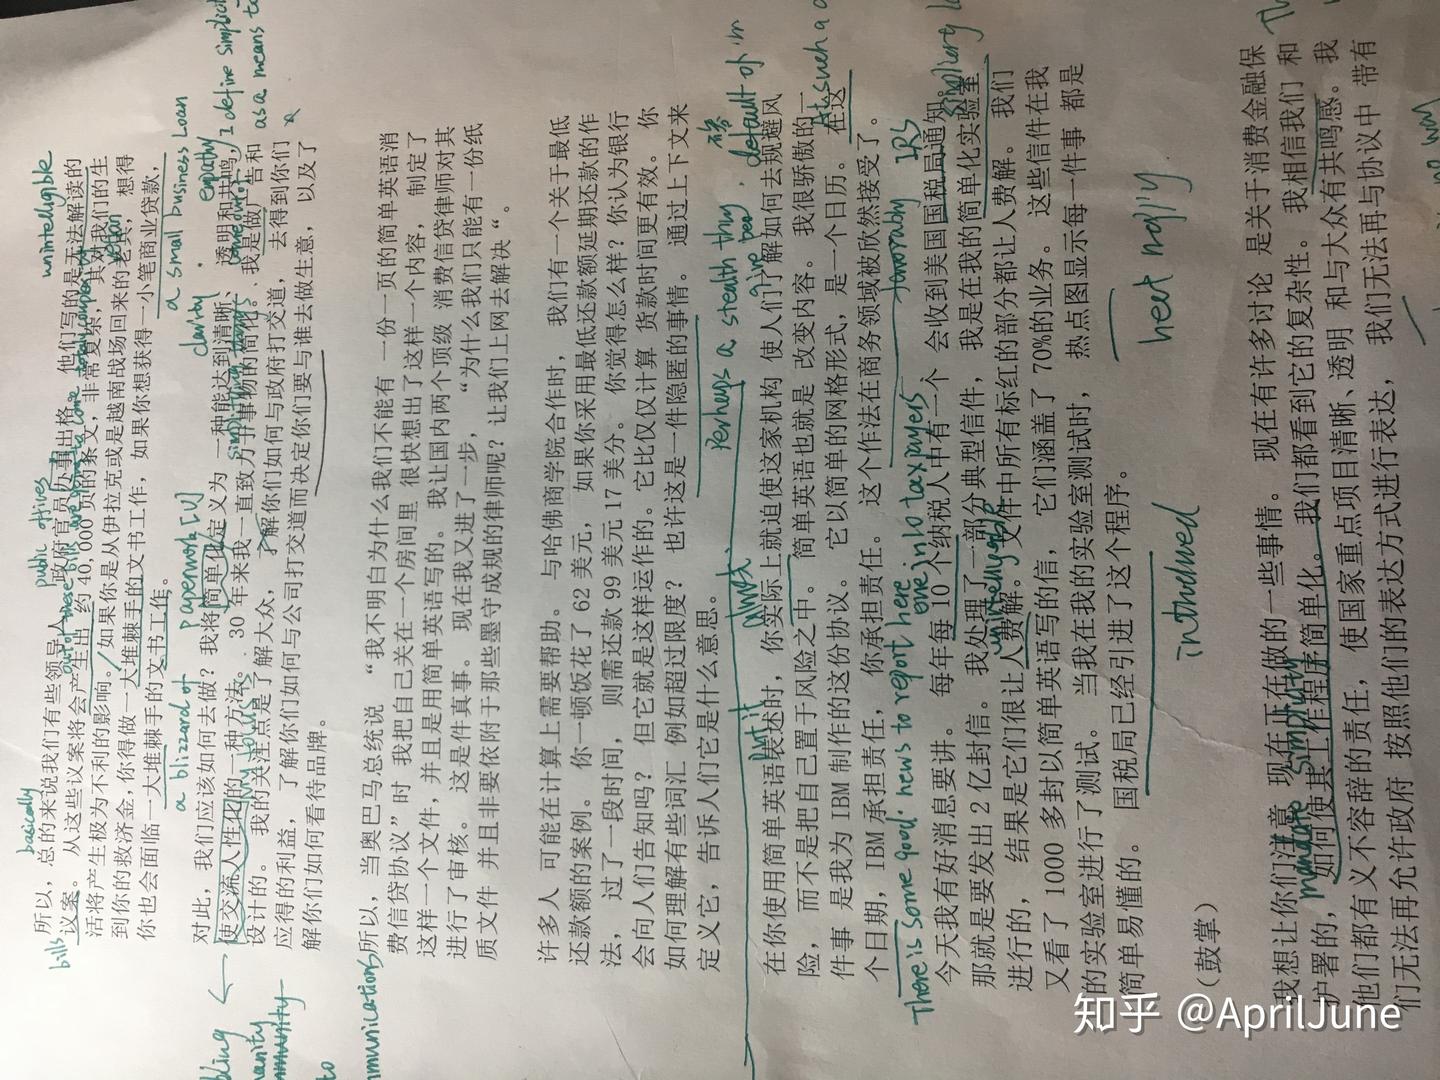 basically
public offives
unintelligible
所以，总的来说我们有些领导人，政府官员办事出格，他们写的是无法解读的
bills
议案。从这些议案将会产生出 约 40,000 页的条文，非常复杂，其对我们的生
活将产生极为不利的影响。如果你是从伊拉克或是越南战场回来的老兵，想得
到你的救济金，你得做一大堆棘手的文书工作，如果你想获得一小笔商业贷款，
你也会面临一大堆棘手的文书工作。
a blizzard of paperwork
a small business loan
clarity
empathy
对此，我们应该如何去做？我将简单化定义为 一种能达到清晰、透明和共鸣，
2 define simplicity
as a means to
使交流人性化的一种方法。30 年来我一直致力于事物的简化。我是做广告和
设计的。 我的关注点是了解大众，了解你们如何与政府打交道， 去得到你们
应得的利益， 了解你们如何与公司打交道而决定你们要与谁去做生意， 以及了
解你们如何看待品牌。
所以，当奥巴马总统说 “我不明白为什么我们不能有 一份一页的简单英语消
费信贷协议”时 我把自己关在一个房间里 很快想出了这样一个内容， 制定了
这样一个文件，并且是用简单英语写的。 我让国内两个顶级 消费信贷律师对其
进行了审核。 这是件真事。 现在我又进了一步， “为什么我们只能有一份纸
质文件 并且非要依附于那些墨守成规的律师呢？让我们上网去解决“。
许多人 可能在计算上需要帮助。 与哈佛商学院合作时， 我们有一个关于最低
还款额的案例。 你一顿饭花了 62 美元， 如果你采用最低还款额延期还款的作
法， 过了一段时间， 则需还款 99 美元 17 美分。 你觉得怎么样？你认为银行
会向人们告知吗？ 但它就是这样运作的。 它比仅仅计算 货款时间更有效。 你
如何理解有些词汇 例如超过限度？ 也许这是一件隐匿的事情。 通过上下文来
定义它，告诉人们它是什么意思。
Perhaps a stealth thing
default of
在你使用简单英语表述时， 你实际上就迫使这家机构 使人们了解如何去规避风
险， 而不是把自己置于风险之中。 简单英语也就是 改变内容。 我很骄傲的一
件事 是我为 IBM 制作的这份协议。 它以简单的网格形式， 是一个日历。 在这
个日期，IBM 承担责任， 你承担责任。 这个作法在商务领域被欣然接受了。
There is some good news to report here
one in 10 taxpayers
favorably
IRS
今天我有好消息要讲。 每年每 10 个纳税人中有一个 会收到美国国税局通知。
那就是要发出 2 亿封信。 我处理了一部分典型信件， 我是在我的简单化实验室
进行的， 结果是它们很让人费解。 文件中所有标红的部分都让人费解。 我们
又看了 1000 多封以简单英语写的信， 它们涵盖了 70%的业务。 这些信件在我
的实验室进行了测试。 当我在我的实验室测试时， 热点图显示每一件事 都是
简单易懂的。 国税局已经引进了这个程序。
introduced
（鼓掌）
我想让你们注意 现在正在做的一些事情。 现在有许多讨论 是关于消费金融保
护署的， 如何使其工作程序简单化。 我们都看到它的复杂性。 我相信我们 和
mandate simplicity
他们都有义不容辞的责任， 使国家重点项目清晰、透明 和与大众有共鸣感。 我
们无法再允许政府 按照他们的表达方式进行表达， 我们无法再与协议中 带有
no way
知乎 @AprilJune